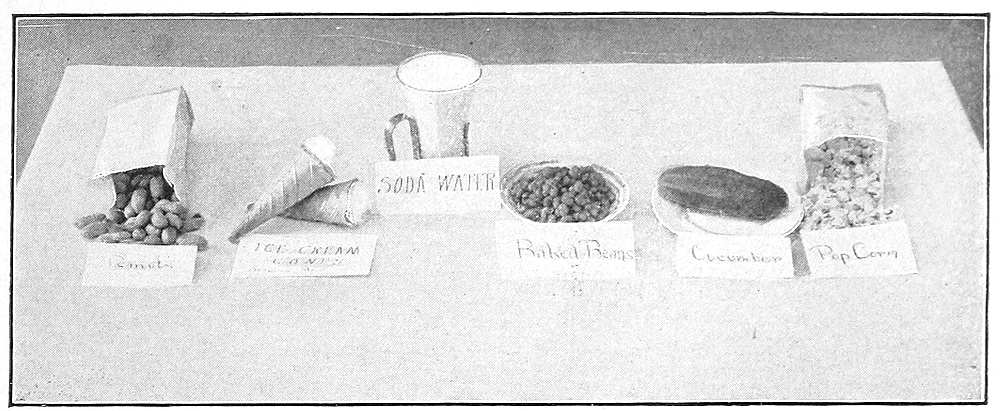 Peanuts
ICE CREAM
CONES
SODA WATER
Baked Beans
Cucumber
Pop Corn